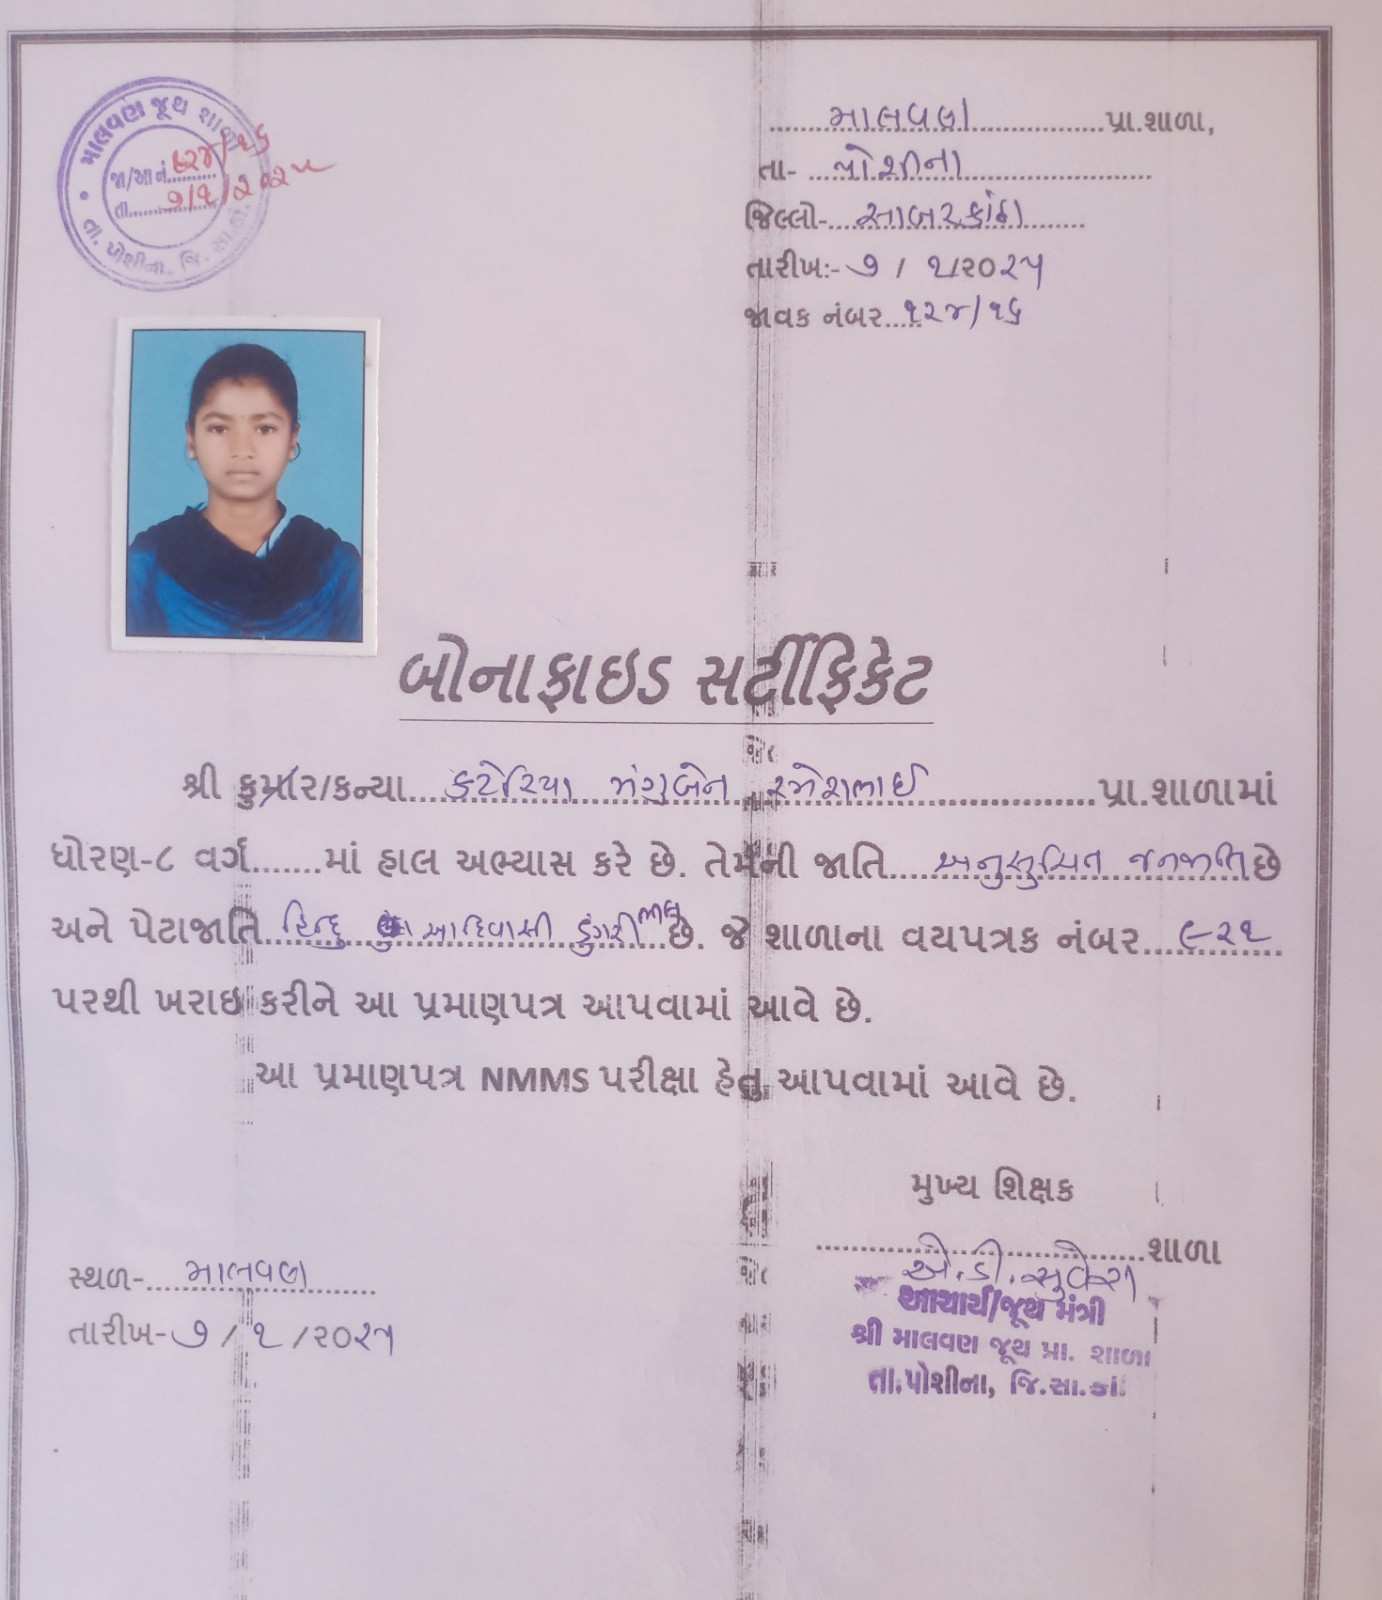 માલવણ જૂથ શાળા
જા/આ નં. ૯૨૪/૧૬
તા. ૭/૧/૨૦૨૫
તા. પોશીના. જિ. સા.કાં.
માલવણ પ્રા.શાળા,
તા- પોશીના
જિલ્લો- સાબરકાંઠા
તારીખ:- ૭ / ૧/૨૦૨૫
જાવક નંબર. ૧૨૪/૧૬
બોનાફાઇડ સર્ટીફિકેટ
શ્રી કુમાર/કન્યા કટેરિયા મંગુબેન રમેશભાઈ પ્રા.શાળામાં
ધોરણ-૮ વર્ગ.......માં હાલ અભ્યાસ કરે છે. તેમની જાતિ અનુસુચિત જનજાતિ છે
અને પેટાજાતિ હિન્દુ આદિવાસી ડુંગરી ભીલ છે. જે શાળાના વયપત્રક નંબર ૯૨૧
પરથી ખરાઇ કરીને આ પ્રમાણપત્ર આપવામાં આવે છે.
આ પ્રમાણપત્ર NMMS પરીક્ષા હેતુ આપવામાં આવે છે.
મુખ્ય શિક્ષક
શાળા
એ.ડી.સુવેરા
આચાર્ય/જૂથ મંત્રી
શ્રી માલવણ જૂથ પ્રા. શાળા
તા.પોશીના, જિ.સા.કાં.
સ્થળ- માલવણ
તારીખ- ૭ / ૧ / ૨૦૨૫